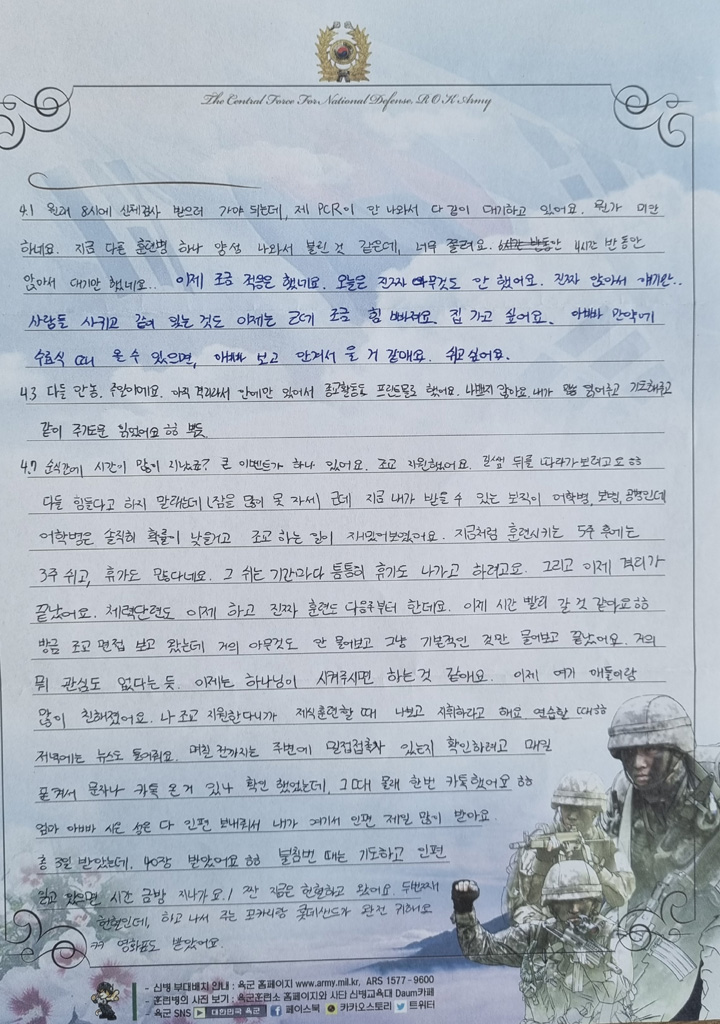 The Central Force For National Defense, R O K Army
4.1 원래 8시에 신체검사 받으러 가야 되는데, 제 PCR이 안 나와서 다 같이 대기하고 있어요. 뭔가 미안
하네요. 지금 다른 훈련병 하나 양성 나와서 불린 것 같은데, 너무 졸려요. 4시간 반 동안
앉아서 대기만 했네요.. 이제 조금 적응은 했네요. 오늘은 진짜 아무것도 안 했어요. 진짜 앉아서 얘기만..
사람들 사키고 같이 있는 것도 이제는 근데 조금 힘 빠져요. 집 가고 싶어요. 아빠 만약에
수료식 때 올 수 있으면, 아빠 보고 안겨서 울 거 같애요. 쉬고싶어요.
4.3 다들 안농. 주일이에요. 아직 격리라서 안에만 있어서 종교활동도 프린트물로 했어요. 나쁘지 않아요. 내가 읽어주고 기도해주고
같이 주기도문 읽었어요 ㅎㅎ
4.7 순식간에 시간이 많이 지났죠? 큰 이벤트가 하나 있어요. 조교 지원했어요. 뒤를 따라가보려고요 ㅎㅎ
다들 힘들다고 하지 말랬는데 (잠을 많이 못 자서) 근데 지금 내가 받을 수 있는 보직이 어학병, 보병, 공병인데
어학병은 솔직히 확률이 낮을거고 조교 하는 일이 재밌어보였어요. 지금처럼 훈련시키는 5주 후에는
3주 쉬고, 휴가도 준다네요. 그 쉬는 기간마다 틈틈히 휴가도 나가고 하려고요. 그리고 이제 격리가
끝났어요. 체력단련도 이제 하고 진짜 훈련도 다음주부터 한데요. 이제 시간 빨리 갈 것 같아요 ㅎㅎ
방금 조교 면접 보고 왔는데 거의 아무것도 안 물어보고 그냥 기본적인 것만 물어보고 끝났어요. 거의
뭐 관심도 없다는 듯. 이제는 하나님이 시켜주시면 하는 것 같애요. 이제 여기 애들이랑
많이 친해졌어요. 나 조교 지원한다니까 제식훈련할 때 나보고 지휘하라고 해요 연습할 때 ㅎㅎ
저녁에는 뉴스도 틀어줘요. 며칠 전까지는 주변에 밀접접촉자 있는지 확인하려고 매일
폰 켜서 문자나 카톡 온 거 있나 확인 했었는데, 그때 몰래 한번 카톡했어요 ㅎㅎ
엄마 아빠 다 인편 보내줘서 내가 여기서 인편 제일 많이 받아요.
총 3일 받았는데, 40장 받았어요 ㅎㅎ 불침번 때는 기도하고 인편
읽고 있으면 시간 금방 지나가요! 지금은 헌혈하고 왔어요. 두번째
헌혈인데, 하고 나서 주는 포카리랑 롯데샌드가 완전 귀해요
영화표도 받았어요.
- 신병 부대배치 안내 : 육군 홈페이지 www.army.mil.kr, ARS 1577-9600
- 훈련병의 사진 보기 : 육군훈련소 홈페이지와 사단 신병교육대 Daum카페
- 육군 SNS 대한민국 육군 페이스북 카카오스토리 트위터